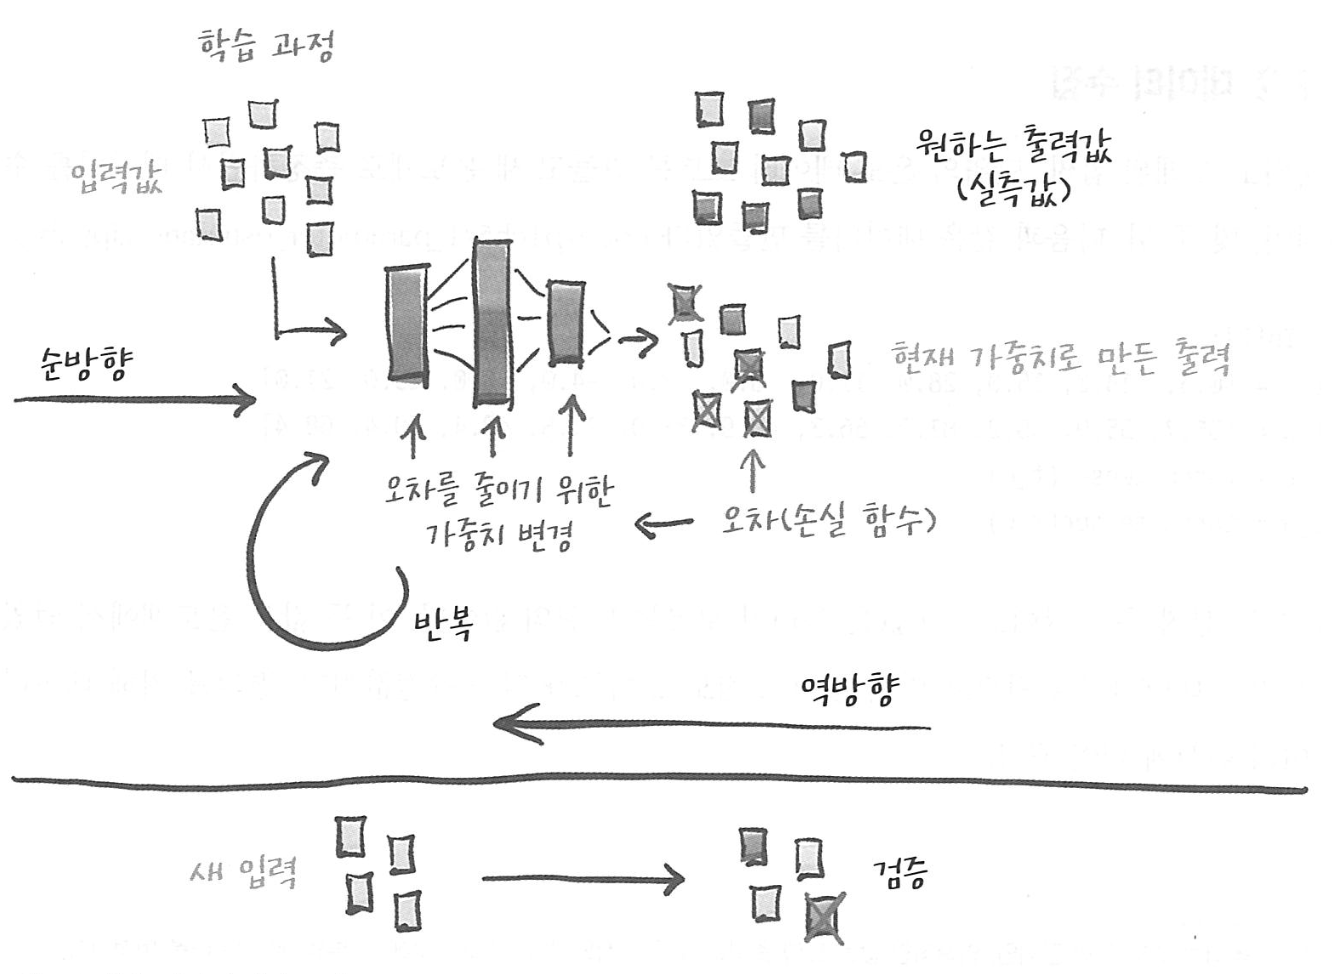 학습 과정
입력값
원하는 출력값
(실측값)
순방향
현재 가중치로 만든 출력
오차를 줄이기 위한
가중치 변경
오차(손실 함수)
반복
역방향
새 입력
검증